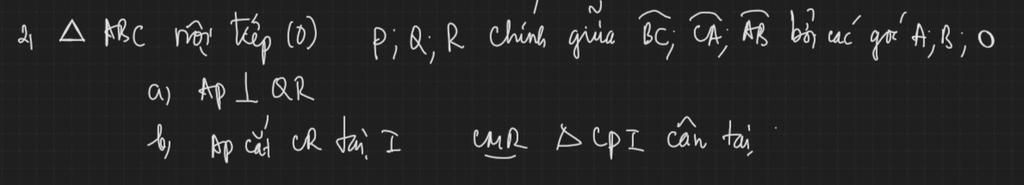 2, △ ABC nội tiếp (O) P; Q; R chính giữa BC; CA; AB bởi các góc A, B, O
a) AP ⊥ QR
b, AP cắt CR tại I CMR △ CPI cân tại